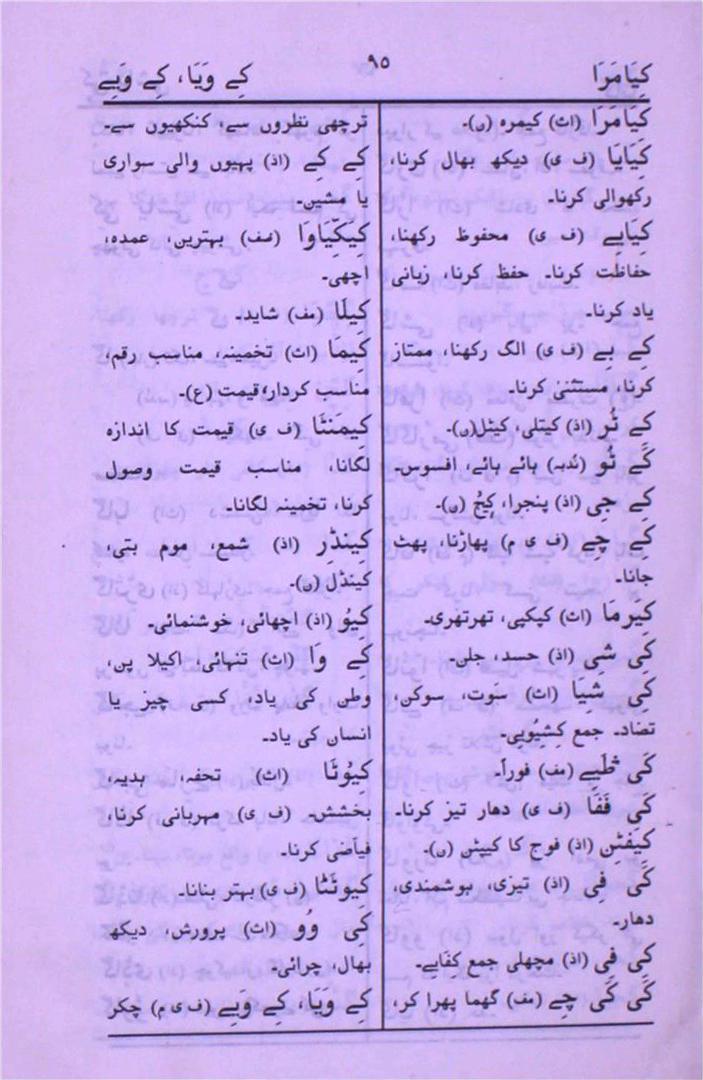 کِیَامَرَا
۹۵
کِے وَیَا، کِے وَبِے
کِیَامَرَا (اث) کیمرہ (ں)۔
کِیَایَا (ف ی) دیکھ بھال کرنا،
رکھوالی کرنا۔
کِیَایِے (ف ی) محفوظ رکھنا،
حفاظت کرنا۔ حفظ کرنا، زبانی
یاد کرنا۔
کِے بِے (ف ی) الگ رکھنا، ممتاز
کرنا، مستثنیٰ کرنا۔
کِے تُر (اذ) کیتلی، کیٹل(ں)۔
کَے تُو (ندبہ) ہائے ہائے، افسوس۔
کِے جِی (اذ) پنجرا، کیج (ں)۔
کِے چِے (ف ی م) پھاڑنا، پھٹ
جانا۔
کِیَرمَا (اث) کپکپی، تھرتھری۔
کَی شِی (اذ) حسد، جلن۔
کِی شِیَا (اث) سَوت، سوکن،
تضاد۔ جمع کِشِیُویِی۔
کَی ظَیِے (مف) فوراً۔
کَی فَفَا (ف ی) دھار تیز کرنا۔
کَیفْٹِن (اذ) فوج کا کیپٹن (ں)۔
کَی فِی (اذ) تیزی، ہوشمندی،
دھار۔
کِی فِی (اذ) مچھلی جمع کِفَایِے۔
کَی کَی چِے (مف) گھما پھرا کر،
ترچھی نظروں سے، کنکھیوں سے۔
کِے کِے (اذ) پہیوں والی سواری
یا مشین۔
کِیَکِّیَاوَا (مف) بہترین، عمدہ،
اچھی۔
کِیلَا (مف) شاید۔
کِیمَا (اث) تخمینہ، مناسب رقم،
مناسب کردار، قیمت (ع)۔
کِیمَنتَا (ف ی) قیمت کا اندازہ
لگانا، مناسب قیمت وصول
کرنا، تخمینہ لگانا۔
کِینڈِر (اذ) شمع، موم بتی،
کینڈل (ں)۔
کِیُو (اذ) اچھائی، خوشنمائی۔
کِے وَا (اث) تنہائی، اکیلا پن،
وطن کی یاد، کسی چیز یا
انسان کی یاد۔
کِیُوتَا (اث) تحفہ، ہدیہ،
بخشش۔ (ف ی) مہربانی کرنا،
فیاضی کرنا۔
کِیوتَتَا (ف ی) بہتر بنانا۔
کِی وُو (اث) پرورش، دیکھ
بھال، چرائی۔
کِے وَیَا، کِے وَبِے (ف ی م) چکر